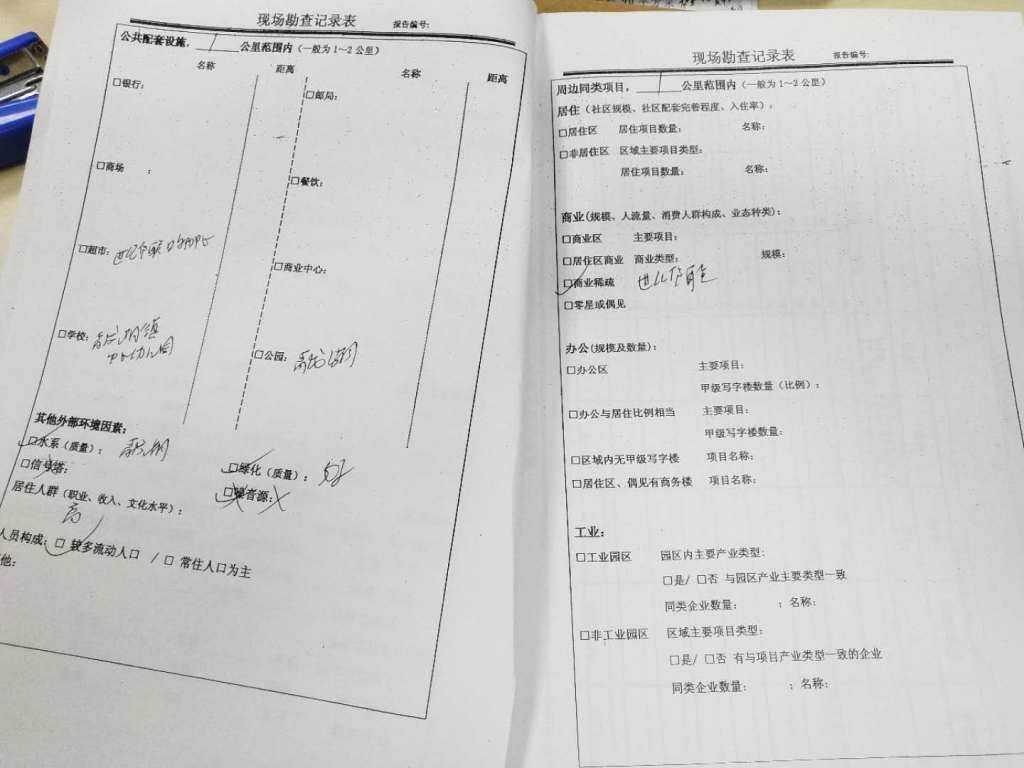 现场勘查记录表 报告编号:
公共配套设施，1公里范围内（一般为1～2公里）
名称 距离 名称 距离
□银行: □邮局:
□商场 : □餐饮:
□超市: 世纪华联
□商业中心:
□学校: 湖镇
中心幼儿园
□公园:
其他外部环境因素:
□水系（质量）:
□绿化（质量）: 好
□信号塔:
□噪音源:
居住人群（职业、收入、文化水平）:
高
人员构成: □ 较多流动人口 / □ 常住人口为主
他:
现场勘查记录表 报告编号:
周边同类项目，1公里范围内（一般为1～2公里）
居住（社区规模、社区配套完善程度、入住率）:
□居住区 居住项目数量: 名称:
□非居住区 区域主要项目类型:
居住项目数量: 名称:
商业(规模、人流量、消费人群构成、业态种类):
□商业区 主要项目:
□居住区商业 商业类型: 规模:
□商业稀疏 世纪华联
□零星或偶见
办公(规模及数量):
□办公区 主要项目:
甲级写字楼数量（比例）:
□办公与居住比例相当 主要项目:
甲级写字楼数量:
□区域内无甲级写字楼 项目名称:
□居住区、偶见有商务楼 项目名称:
工业:
□工业园区 园区内主要产业类型:
□是/ □否 与园区产业主要类型一致
同类企业数量: ; 名称:
□非工业园区 区域主要项目类型:
□是/ □否 有与项目产业类型一致的企业
同类企业数量: ; 名称: